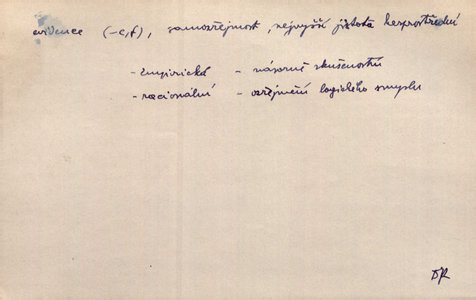 evidence (-c,f), samozřejmost, nejvyšší jistota bezprostřední
- empirická - názorné skušenosti
- racionální - ozřejmění logického smyslu